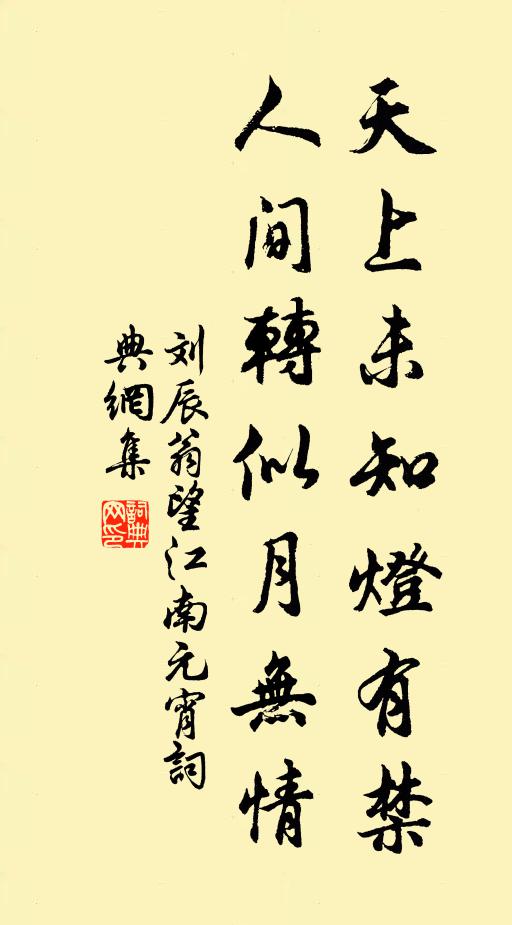 天上未知燈有禁
人間轉似月無情
刘辰翁望江南元宵詞
典網集
詞典网印